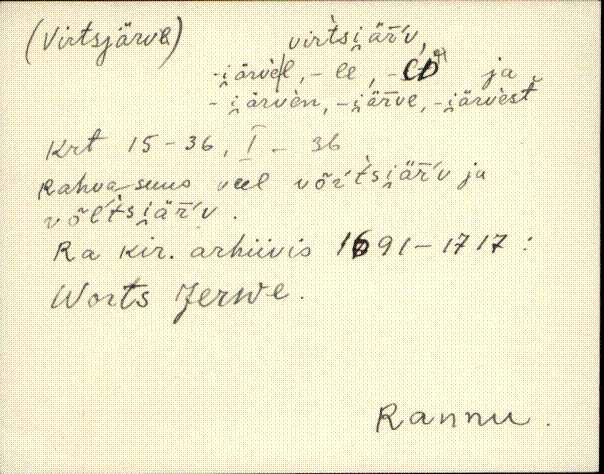 (Virtsjärve) virt̀si̯är̄v,
-i̯ärvel, -le, -lD ja
-i̯ärvèn, -i̯är̄ve, -i̯ärvèst
Krt 15-36, I - 36
Rahva suus veel võrt̀si̯är̄v ja
võlt̀si̯är̄v.
Ra kir. arhiivis 1691-1717:
Worts Jerwe.
Rannu.